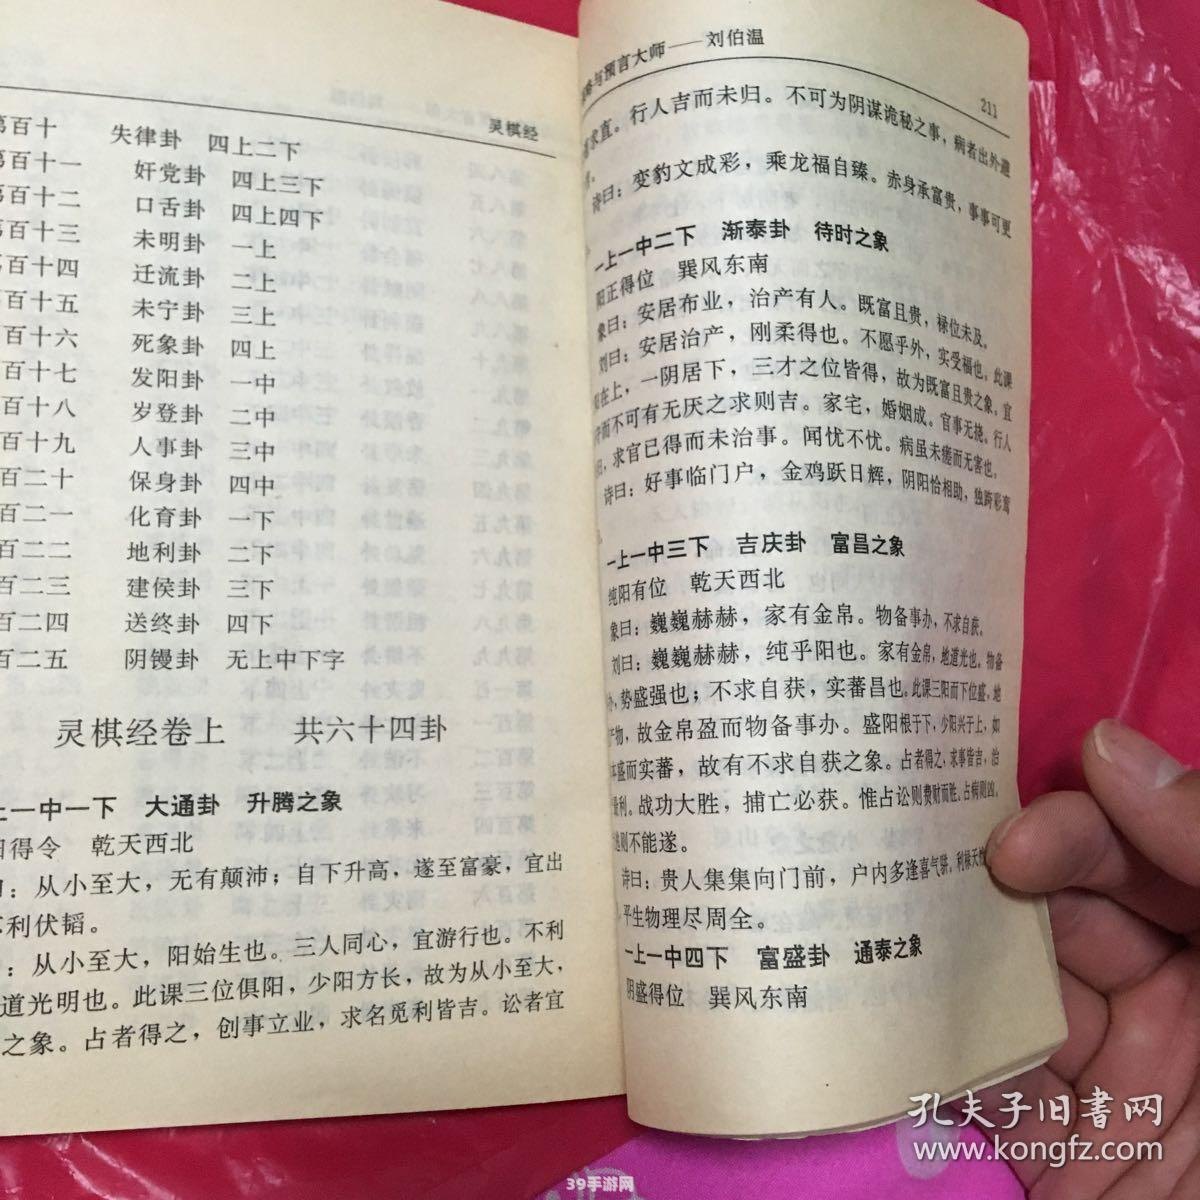 灵棋经
第百十 失律卦 四上二下
第百十一 奸党卦 四上三下
第百十二 口舌卦 四上四下
百十三 未明卦 一上
百十四 迁流卦 二上
百十五 未宁卦 三上
百十六 死象卦 四上
百十七 发阳卦 一中
百十八 岁登卦 二中
百十九 人事卦 三中
百二十 保身卦 四中
百二一 化育卦 一下
百二二 地利卦 二下
百二三 建侯卦 三下
百二四 送终卦 四下
百二五 阴镘卦 无上中下字
灵棋经卷上 共六十四卦
上一中一下 大通卦 升腾之象
得令 乾天西北
：从小至大，无有颠沛；自下升高，遂至富豪，宜出
利伏韬。
：从小至大，阳始生也。三人同心，宜游行也。不利
道光明也。此课三位俱阳，少阳方长，故为从小至大，
之象。占者得之，创事立业，求名觅利皆吉。讼者宜
与预言大师——刘伯温
211
求直。行人吉而未归。不可为阴谋诡秘之事，病者出外避
诗曰：变豹文成彩，乘龙福自臻。赤身承富贵，事事可更
一上一中二下 渐泰卦 待时之象
阳正得位 巽风东南
象曰：安居布业，治产有人。既富且贵，禄位未及。
刘曰：安居治产，刚柔得也。不愿乎外，实受福也。此课
在上，一阴居下，三才之位皆得，故为既富且贵之象。宜
而不可有无厌之求则吉。家宅，婚姻成。官事无挠。行人
，求官已得而未治事。闻忧不忧。病虽未瘥而无害也。
诗曰：好事临门户，金鸡跃日辉，阴阳恰相助，独跨彩鸾
一上一中三下 吉庆卦 富昌之象
纯阳有位 乾天西北
象曰：巍巍赫赫，家有金帛。物备事办，不求自获。
刘曰：巍巍赫赫，纯乎阳也。家有金帛，地道光也。物备
，势盛强也；不求自获，实蕃昌也。此课三阳而下位盛，地
产物，故金帛盈而物备事办。盛阳根于下，少阳兴于上，如
盛而实蕃，故有不求自获之象。占者得之，求事皆吉，治
最利。战功大胜，捕亡必获。惟占讼则费财而胜。占病则凶。
则不能遂。
诗曰：贵人集集向门前，户内多逢喜气骈。利禄天
平生物理尽周全。
一上一中四下 富盛卦 通泰之象
阴盛得位 巽风东南
孔夫子旧书网
www.kongfz.com
39手游网